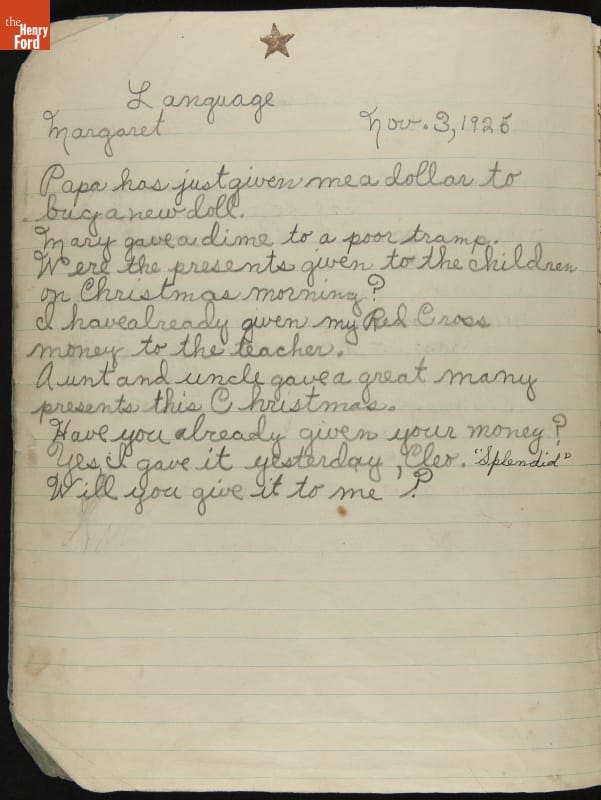 the
Henry
Ford
Language
Margaret Nov. 3, 1925
Papa has just given me a dollar to
buy a new doll.
Mary gave a dime to a poor tramp.
Were the presents given to the children
on Christmas morning?
I have already given my Red Cross
money to the teacher.
Aunt and uncle gave a great many
presents this Christmas.
Have you already given your money?
Yes, I gave it yesterday, Cleo. "Splendid"
Will you give it to me?